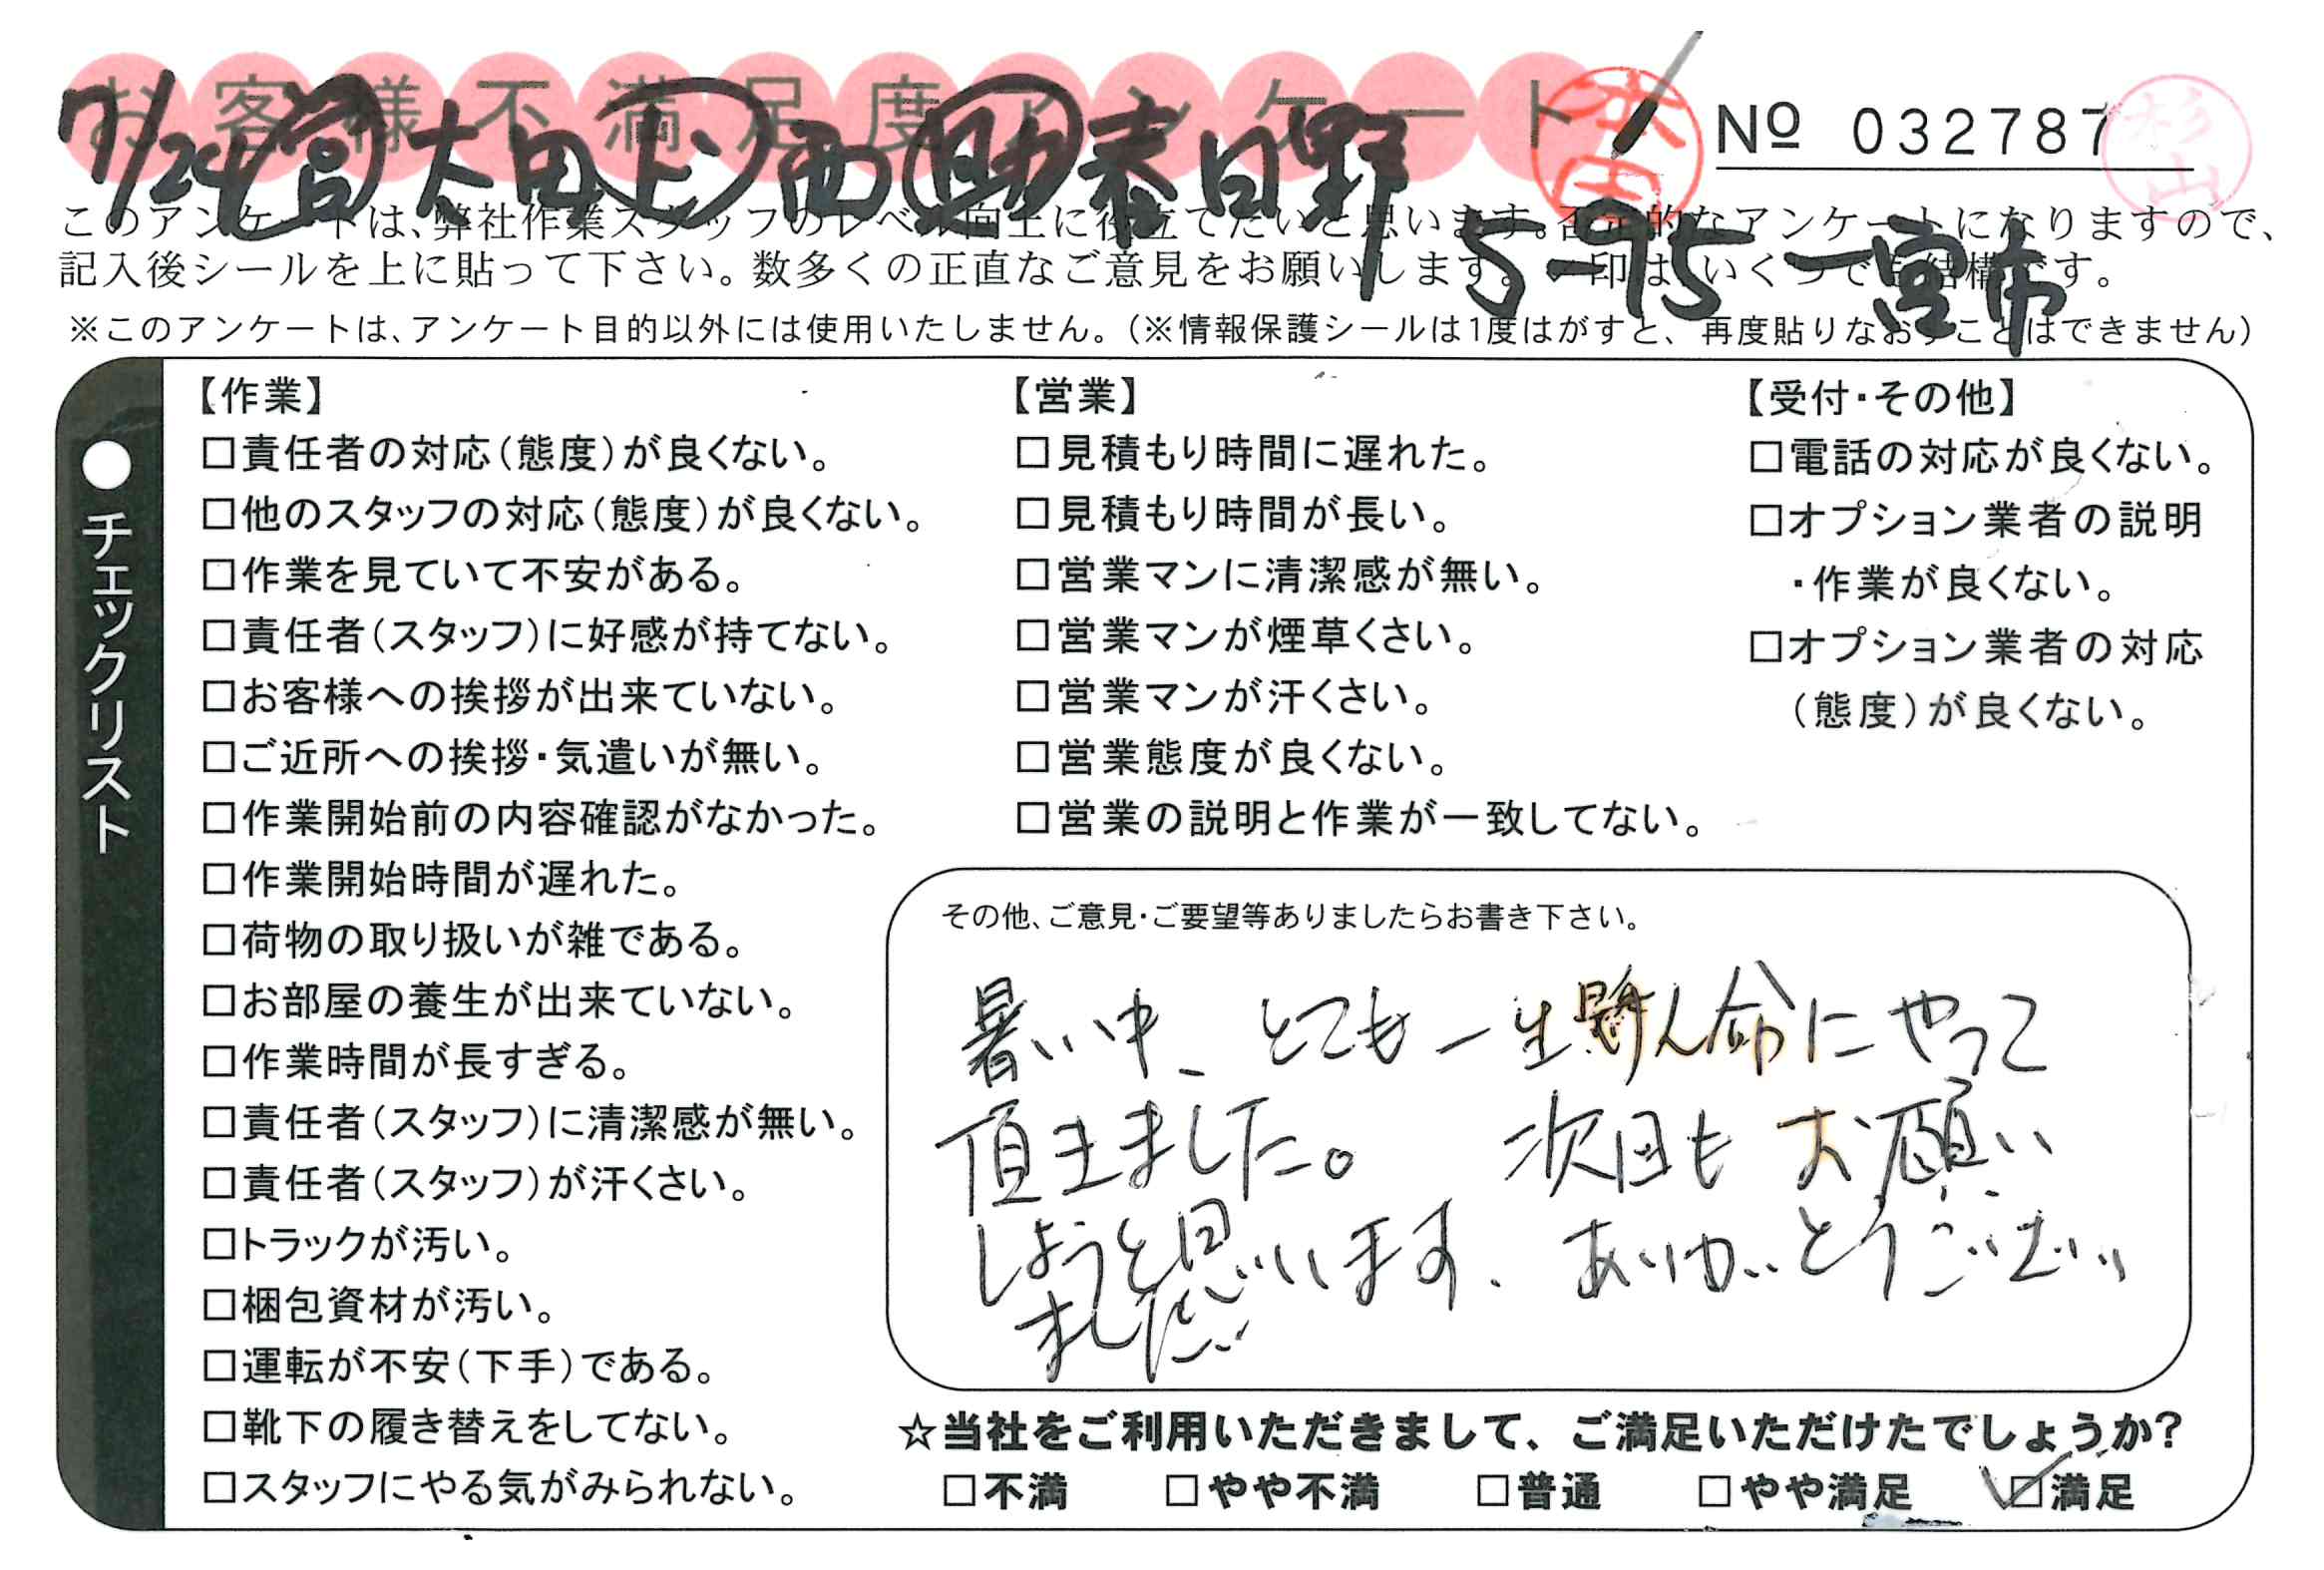 お客様不満足度アンケート
7/24 営 太田 上 西 助 春日野
水田
№ 032787
杉山
5-75 一宮市
このアンケートは、弊社作業スタッフのレベル向上に役立てたいと思います。否定的なアンケートになりますので、
記入後シールを上に貼って下さい。数多くの正直なご意見をお願いします。✓印はいくつでも結構です。
※このアンケートは、アンケート目的以外には使用いたしません。（※情報保護シールは1度はがすと、再度貼りなおすことはできません）
●チェックリスト
【作業】
□責任者の対応（態度）が良くない。
□他のスタッフの対応（態度）が良くない。
□作業を見ていて不安がある。
□責任者（スタッフ）に好感が持てない。
□お客様への挨拶が出来ていない。
□ご近所への挨拶・気遣いが無い。
□作業開始前の内容確認がなかった。
□作業開始時間が遅れた。
□荷物の取り扱いが雑である。
□お部屋の養生が出来ていない。
□作業時間が長すぎる。
□責任者（スタッフ）に清潔感が無い。
□責任者（スタッフ）が汗くさい。
□トラックが汚い。
□梱包資材が汚い。
□運転が不安（下手）である。
□靴下の履き替えをしてない。
□スタッフにやる気がみられない。
【営業】
□見積もり時間に遅れた。
□見積もり時間が長い。
□営業マンに清潔感が無い。
□営業マンが煙草くさい。
□営業マンが汗くさい。
□営業態度が良くない。
□営業の説明と作業が一致してない。
【受付・その他】
□電話の対応が良くない。
□オプション業者の説明
・作業が良くない。
□オプション業者の対応
（態度）が良くない。
その他、ご意見・ご要望等ありましたらお書き下さい。
暑い中、とても一生懸ん命にやって
頂きました。 次回も お願い
しようと思います、ありがとうござい
ました
☆当社をご利用いただきまして、ご満足いただけたでしょうか？
□不満 □やや不満 □普通 □やや満足 ☑満足